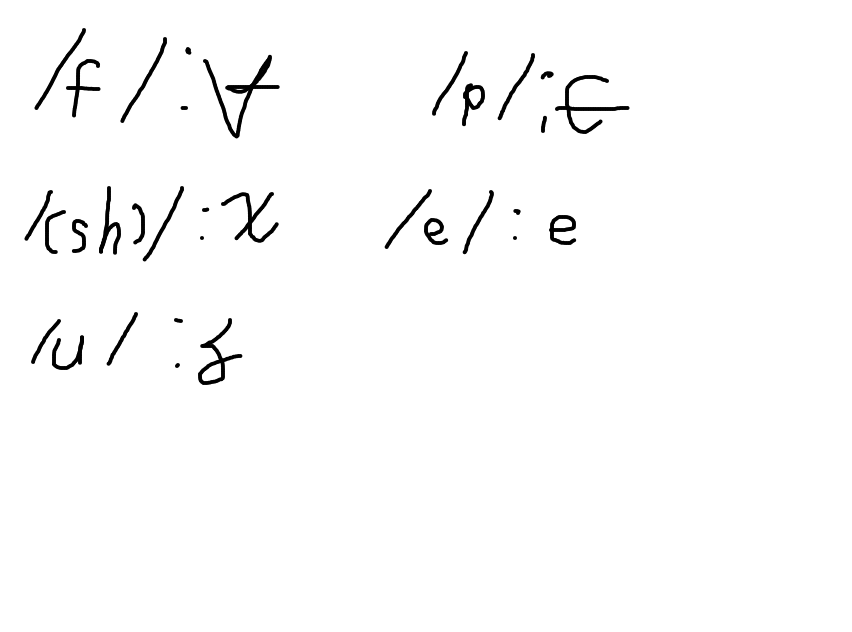 /f/ : ∀ /p/ : ⋲
/(sh)/ : χ /e/ : e
/u/ :